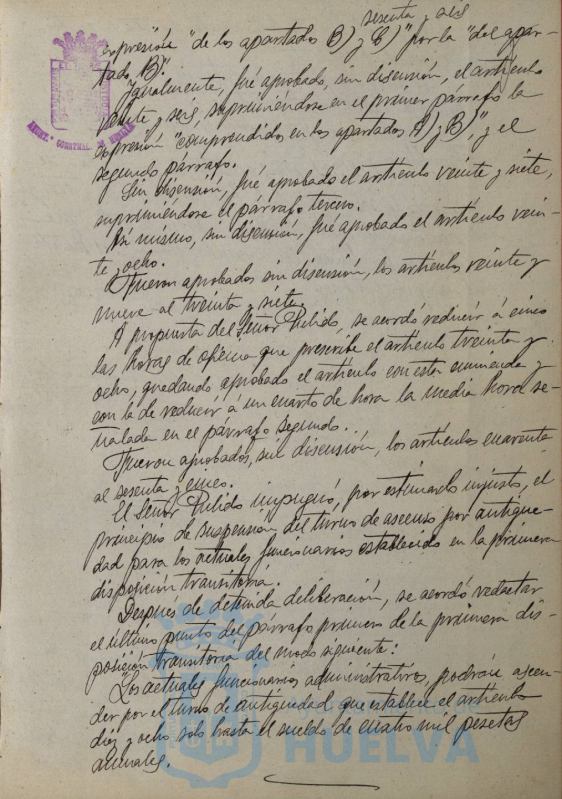 sesenta y seis
expresión "de los apartados B) y C)" por la "del apar-
tado B)".
Igualmente, fué aprobado, sin discusión, el artículo
veinte y seis, suprimiéndose en el primer párrafo la
expresión "comprendidos en los apartados A) y B)", y el
segundo párrafo.
Sin discusión, fué aprobado el artículo veinte y siete,
suprimiéndose el párrafo tercero.
Así mismo, sin discusión, fué aprobado el artículo vein-
te y ocho.
Fueron aprobados sin discusión, los artículos veinte y
nueve al treinta y siete.
A propuesta del Señor Pulido, se acordó reducir á cinco
las horas de oficina que prescribe el artículo treinta y
ocho, quedando aprobado el artículo con esta enmienda y
con la de reducir á un cuarto de hora la media hora se-
ñalada en el párrafo segundo.
Fueron aprobados, sin discusión, los artículos cuarenta
al sesenta y cinco.
El Señor Pulido impugnó, por estimarlo injusto, el
principio de suspensión del turno de ascenso por antigüe-
dad para los actuales funcionarios establecido en la primera
disposición transitoria.
Después de detenida deliberación, se acordó redactar
el último punto del párrafo primero de la primera dis-
posición transitoria del modo siguiente:
"Los actuales funcionarios administrativos, podrán ascen-
der por el turno de antigüedad que establece el artículo
diez y ocho solo hasta el sueldo de cuatro mil pesetas
anuales.
HUELVA